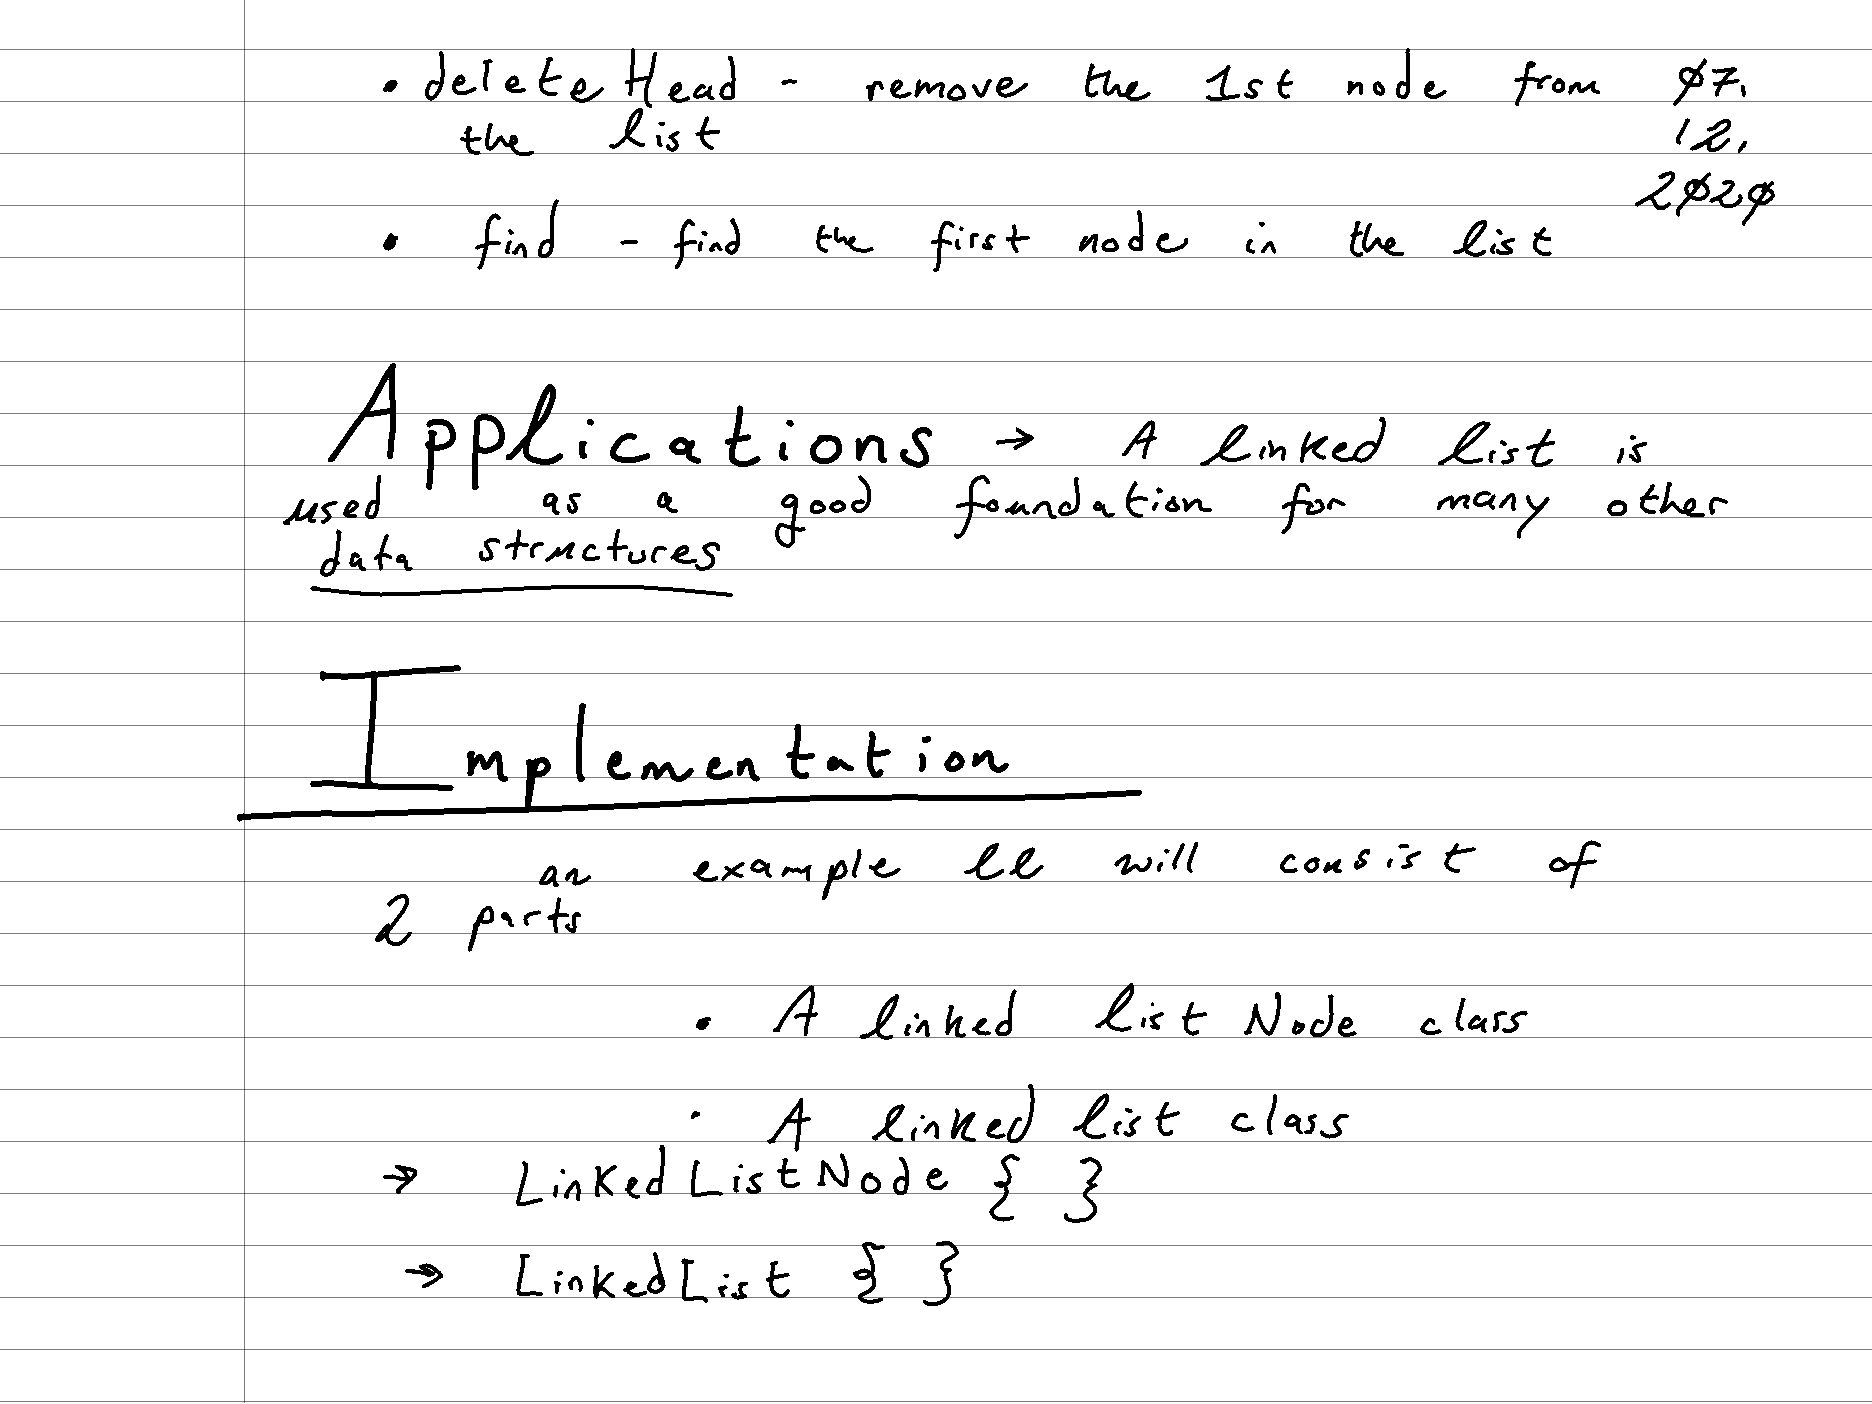 • deleteHead - remove the 1st node from
the list
07.
12.
2020
• find - find the first node in the list
Applications → A linked list is
used as a good foundation for many other
data structures
Implementation
an example ll will consist of
2 parts
• A linked list Node class
• A linked list class
→ LinkedListNode { }
→ LinkedList { }